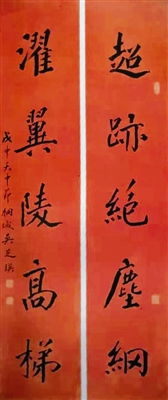 超跡絕塵網
濯翼陵高梯
戊申天中節 桐城吳芝瑛